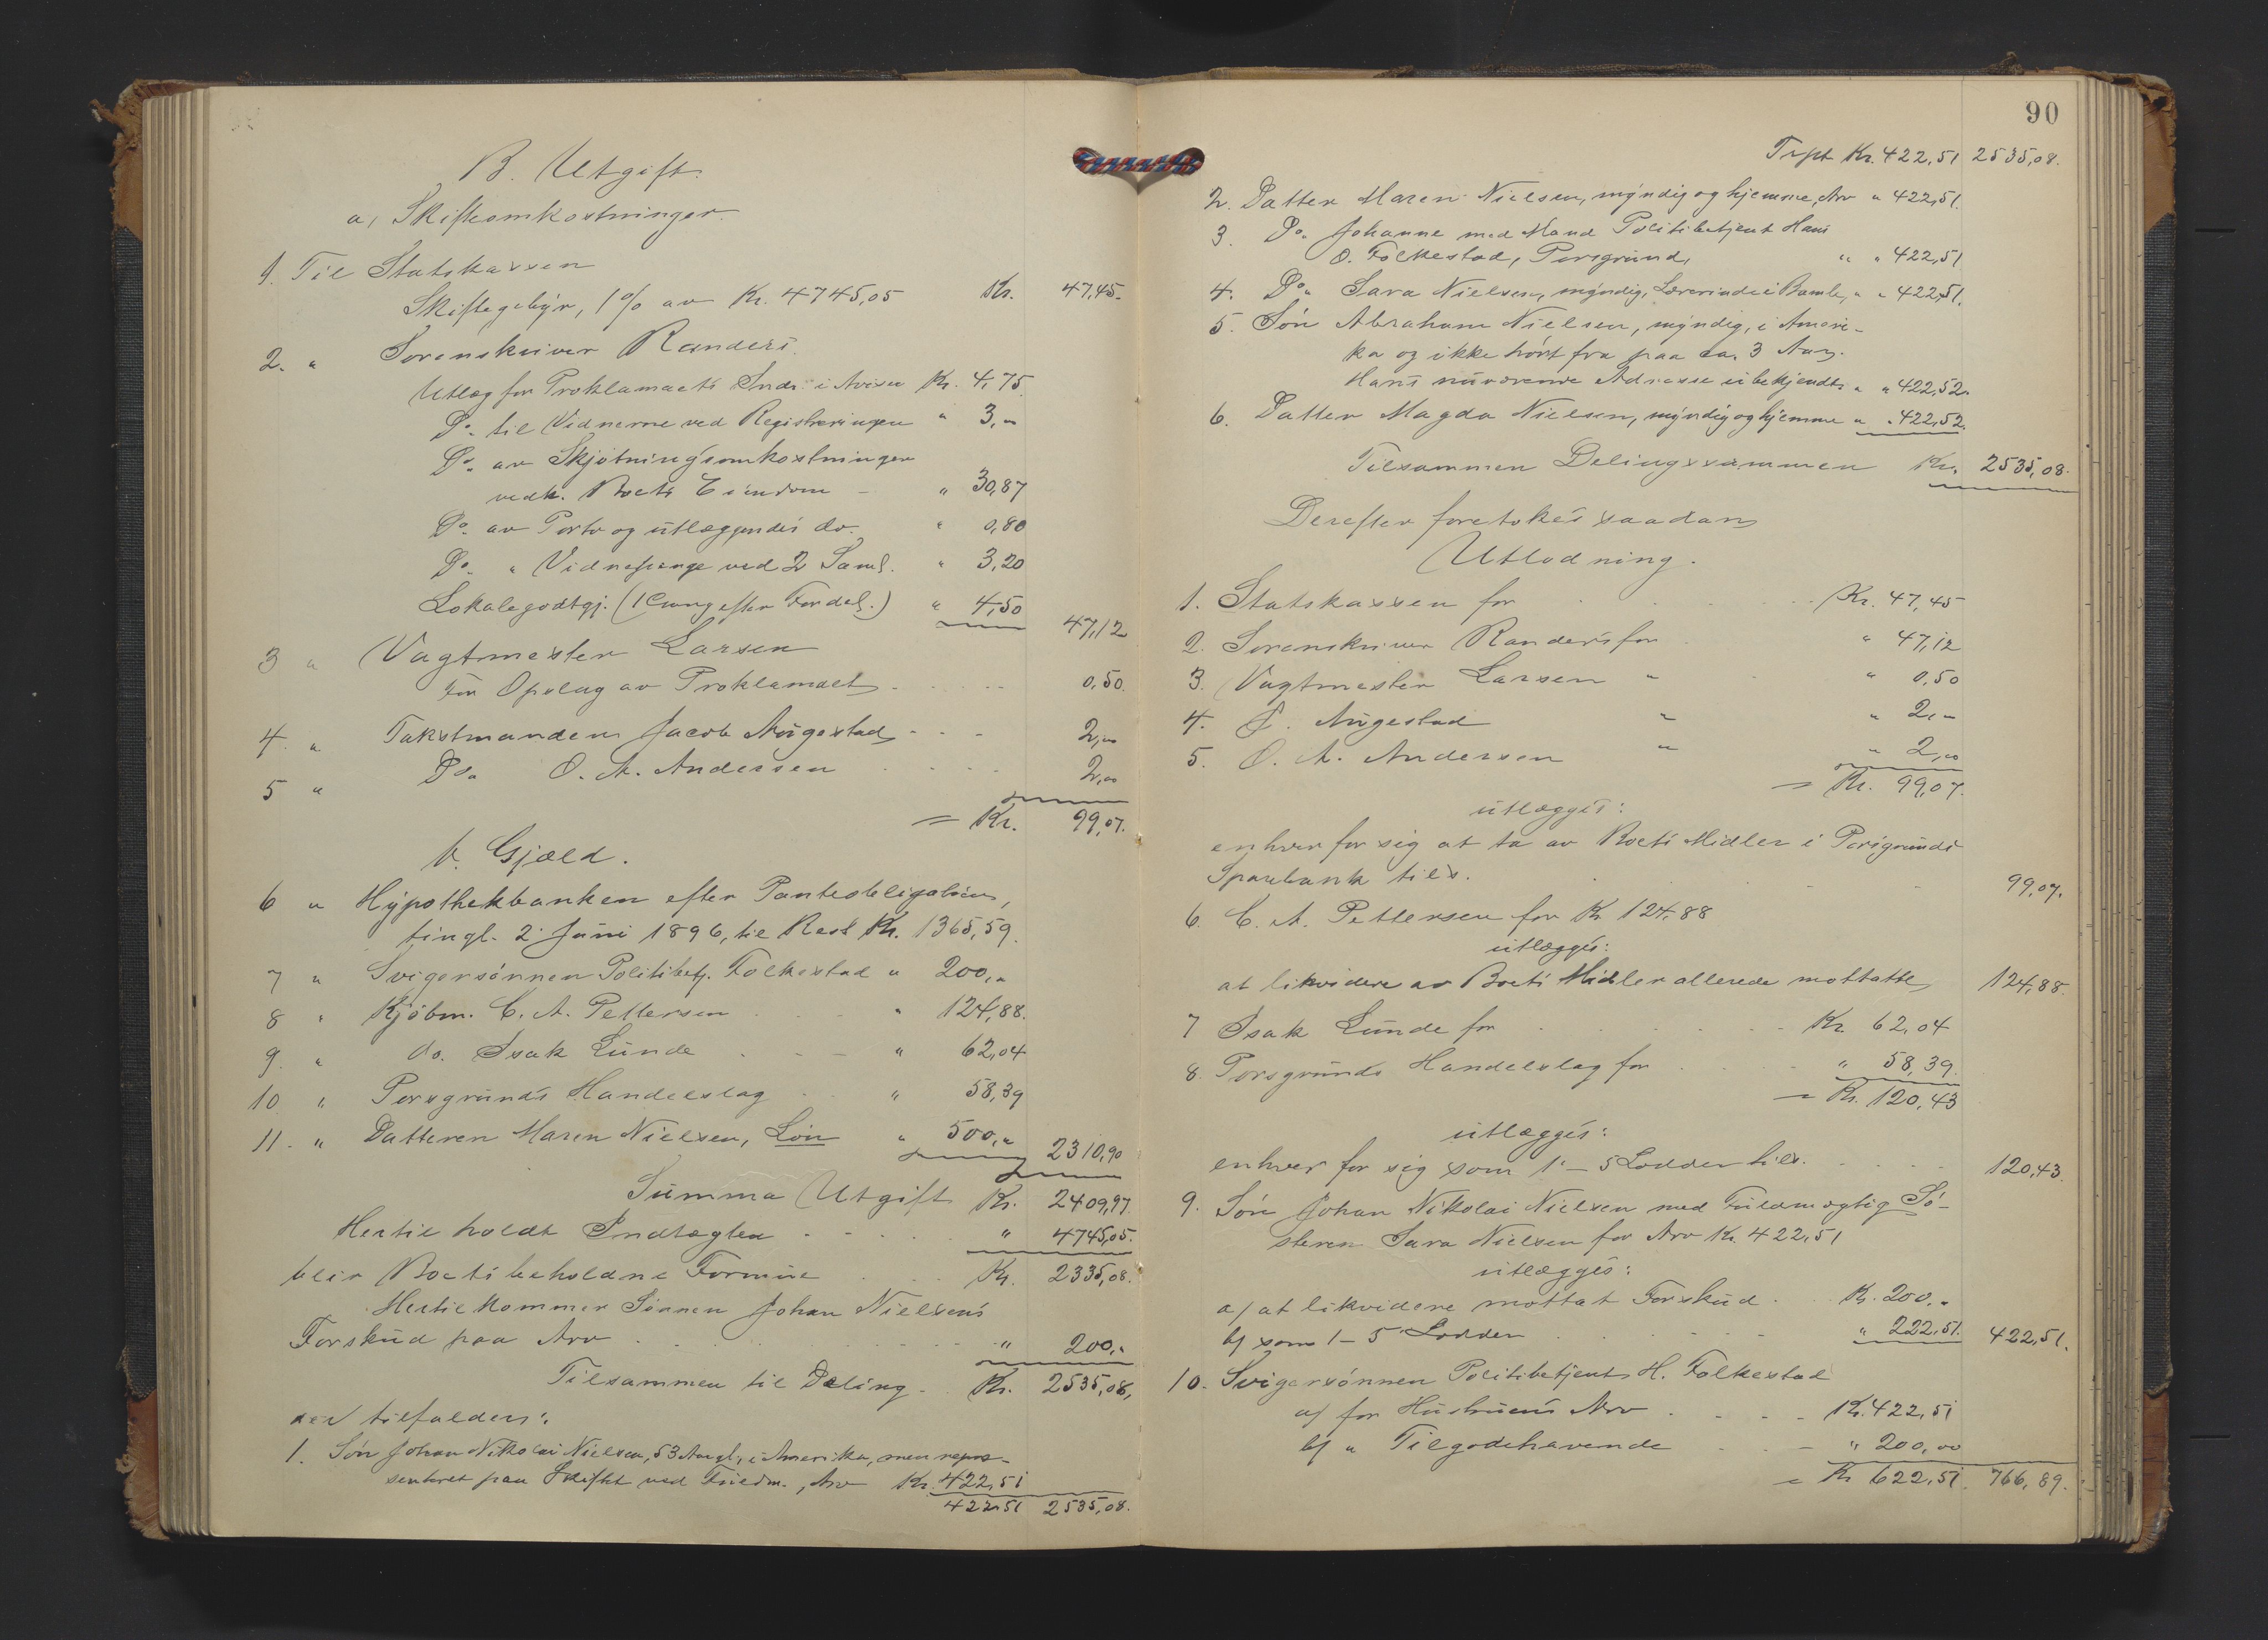 B. Utgift.
a, Skifteomkostninger.
1. Til Statskassen
Skiftegebyr, 1% av Kr. 4745,05 Kr. 47,45.
2. " Sorenskriver Randers.
Utlæg for Proklamaets Indr. i Avisen Kr. 4,75.
Do. til Vidnerne ved Registreringen " 3,"
Do. av Skjøtningsomkostninger
vedk. Boets Eiendom – " 30,87
Do. av Porto og utlæggendes do. " 0,80
Do. " Vidnepenge ved 2 Saml. " 3,20
Lokalegodtgj. (1 Gang efter Fordel.) " 4,50 47,12
3 " Vagtmester Larsen
For Opslag av Proklamaet . . . . 0,50.
4. " Takstmanden Jacob Augestad . . . 2,00
5 " Do. O. A. Andersen . . . . 2,00
= Kr. 99,07.
b. Gjæld.
6 " Hypothekbanken efter Panteobligation,
tingl. 2. Juni 1896, til Rest Kr. 1365,59.
7 " Svigersønnen Politibetj. Folkestad " 200,"
8 " Kjøbm. C. A. Pettersen . . " 124,88.
9. " do. Isak Lunde . . – " 62,04
10 " Porsgrunds Handelslag . . " 58,39
11. " Datteren Maren Nielsen, Løn " 500," 2310,90
Summa Utgift Kr. 2409,97.
Hertil holdt Indtægten . . . . " 4745,05.
blir Boets beholdne Formue . . . Kr. 2335,08.
Hertil kommer Sønnen Johan Nielsens
Forskud paa Arv . . . . . . " 200,"
Tilsammen til Deling . Kr. 2535,08,
der tilfalder:
1. Søn Johan Nikolai Nielsen, 53 Aar gl., i Amerika, men repræ-
senteret paa Skiftet ved Fuldm., Arv Kr. 422,51
422,51 2535,08.
90
Trspt Kr. 422,51 2535,08.
2. Datter Maren Nielsen, myndig og hjemme, Arv " 422,51.
3. Do. Johanne med Mand Politibetjent Hans
O. Folkestad, Porsgrund, " " 422,51
4. Do. Sara Nielsen, myndig, Lærerinde i Bamle, " " 422,51.
5. Søn Abraham Nielsen, myndig, i Ameri-
ka og ikke hørt fra paa ca. 3 Aar.
Hans nuværende Adresse ubekjendt. " " 422,52.
6. Datter Magda Nielsen, myndig og hjemme " " 422,52.
Tilsammen Delingssummen Kr. 2535,08.
Derefter foretokes saadan
Utlodning.
1. Statskassen for . . . . Kr. 47,45
2. Sorenskriver Randers for . " 47,12
3. Vagtmester Larsen " . " 0,50
4. J. Augestad " " 2,"
5. O. A. Andersen " " 2,00
= Kr. 99,07.
utlægges:
enhver for sig at ta av Boets Midler i Porsgrunds
Sparebank tils. . . . . 99,07.
6. C. A. Pettersen for Kr. 124,88
utlægges:
at likvidere av Boets Midler allerede mottatte 124,88.
7 Isak Lunde for . . . . Kr. 62,04
8. Porsgrunds Handelslag for . . . " 58,39.
= Kr. 120,43
utlægges:
enhver for sig som 1. – 5 Lodder tils. . . . 120,43.
9. Søn Johan Nikolai Nielsen med Fuldmægtig Sø-
steren Sara Nielsen for Arv Kr. 422,51
utlægges:
a) at likvidere mottat Forskud . . Kr. 200,"
b) som 1 – 5 Lodder . . . . " 222,51. 422,51.
10. Svigersønnen Politibetjent H. Folkestad
a) for Hustruens Arv . . . . Kr. 422,51
b) " Tilgodehavende . . – " 200,00
= Kr 622,51. 766,89.